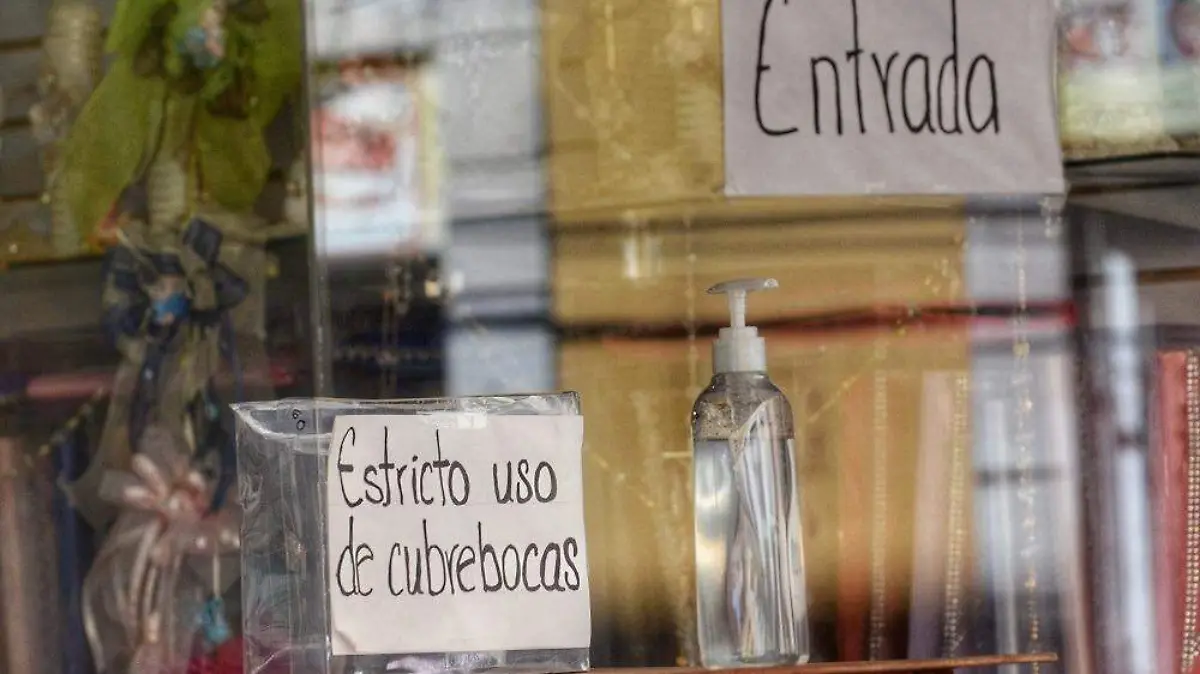 Entrada
Estricto uso
de cubrebocas